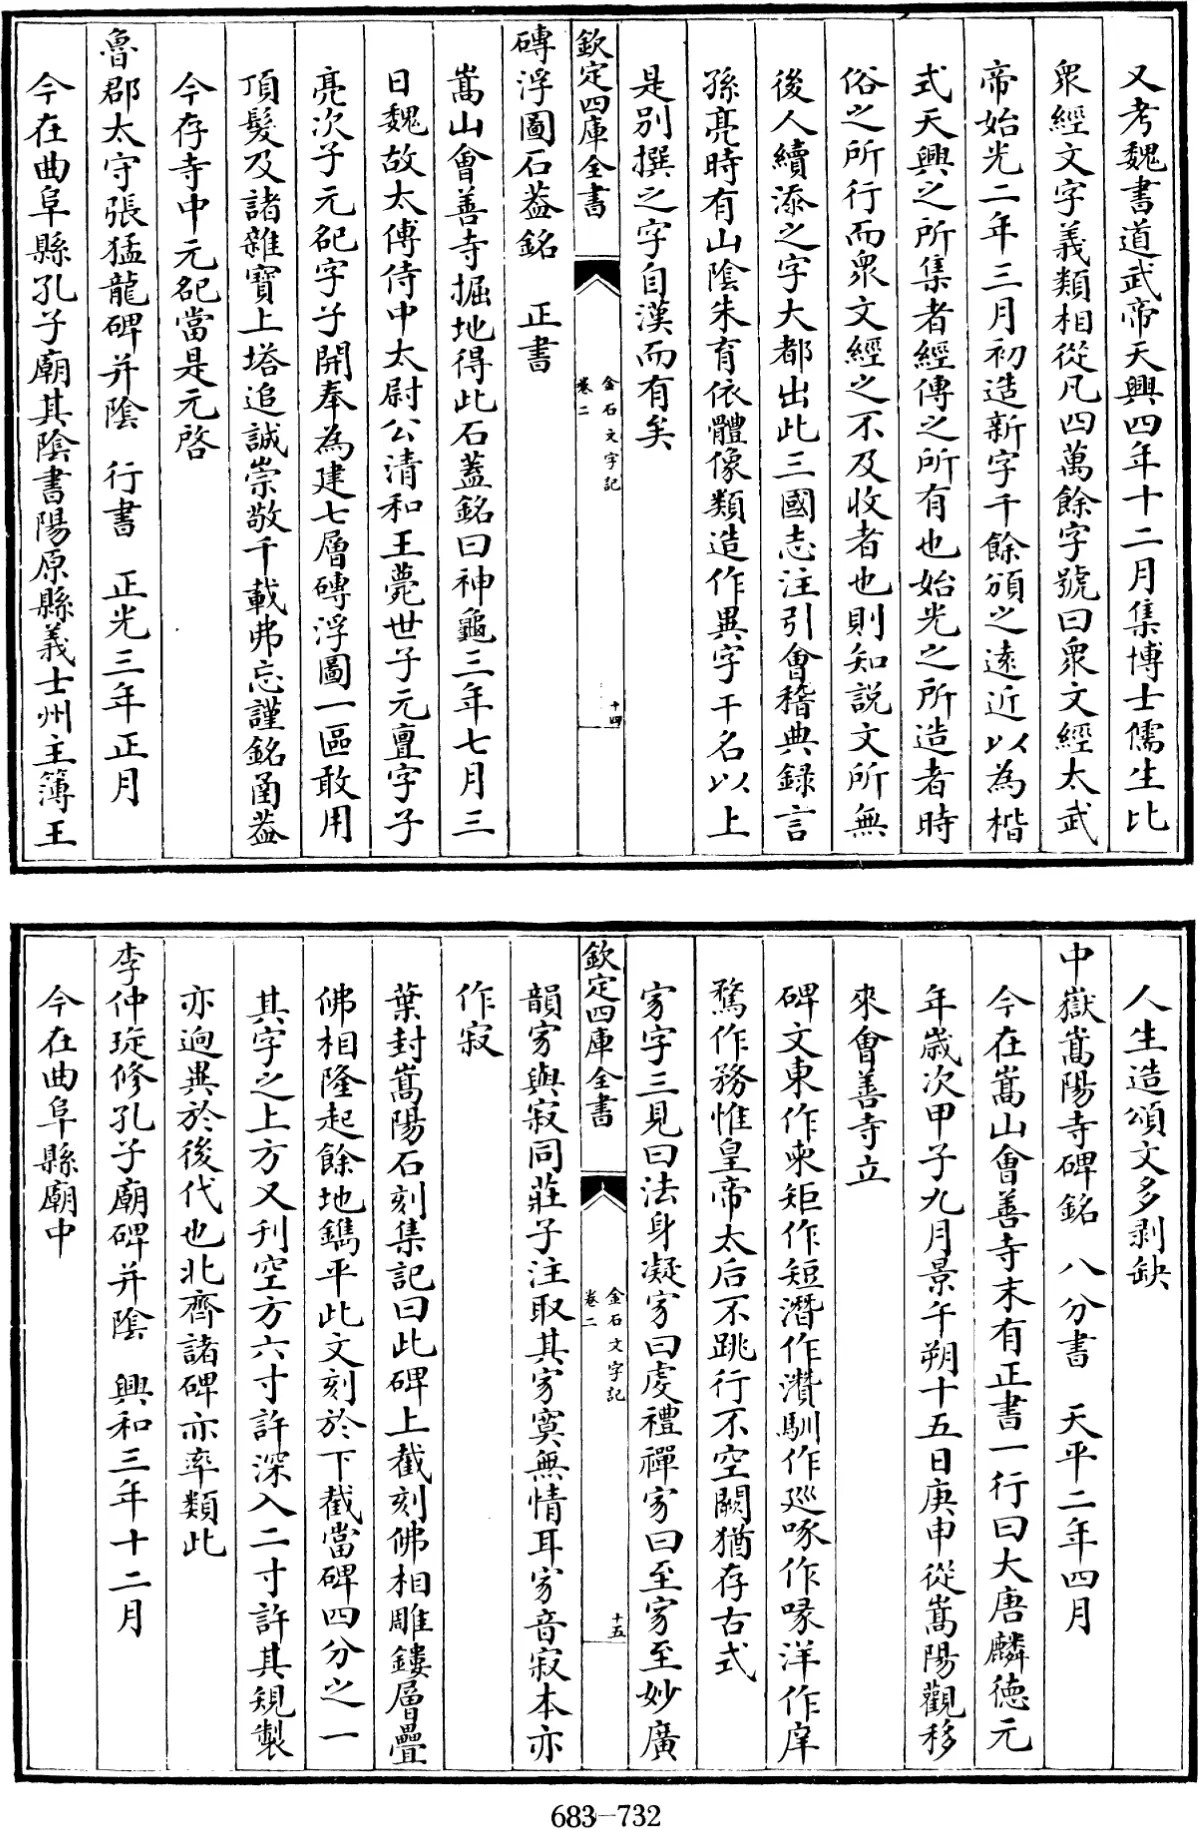 又考魏書道武帝天興四年十二月集博士儒生比
衆經文字義類相從凡四萬餘字號曰衆文經太武
帝始光二年三月初造新字千餘頒之逺近以為楷
式天興之所集者經傳之所有也始光之所造者時
俗之所行而衆文經之不及收者也則知説文所無
後人續添之字大都出此三國志注引會稽典録言
孫亮時有山陰朱育依體像類造作異字千名以上
是别撰之字自漢而有矣
欽定四庫全書
金石文字記
卷二
十四
磚浮圖石葢銘 正書
嵩山會善寺掘地得此石蓋銘曰神龜三年七月三
日魏故太傅侍中太尉公清和王薨世子元亶字子
亮次子元䂀字子開奉為建七層磚浮圖一區敢用
頂髮及諸雜寶上塔追誠崇敬千載弗忘謹銘甬葢
今存寺中元䂀當是元啓
魯郡太守張猛龍碑并隂 行書 正光三年正月
今在曲阜縣孔子廟其隂書陽原縣義士州主簿王
人生造頌文多剥缺
中嶽嵩陽寺碑銘 八分書 天平二年四月
今在嵩山會善寺末有正書一行曰大唐麟徳元
年歳次甲子九月景午朔十五日庚申從嵩陽觀移
來會善寺立
碑文東作柬矩作短潛作濳馴作廵啄作喙洋作庠
騖作務惟皇帝太后不跳行不空闕猶存古式
㝱字三見曰法身凝㝱曰䖍禮禪㝱曰至㝱至妙廣
欽定四庫全書
金石文字記
卷二
十五
韻㝱與寂同莊子注取其㝱寞無情耳㝱音寂本亦
作寂
葉封嵩陽石刻集記曰此碑上截刻佛相雕鏤層疊
佛相隆起餘地鐫平此文刻於下截當碑四分之一
其字之上方又刊空方六寸許深入二寸許其規製
亦逈異於後代也北齊諸碑亦率類此
李仲璇修孔子廟碑并隂 興和三年十二月
今在曲阜縣廟中
683-732